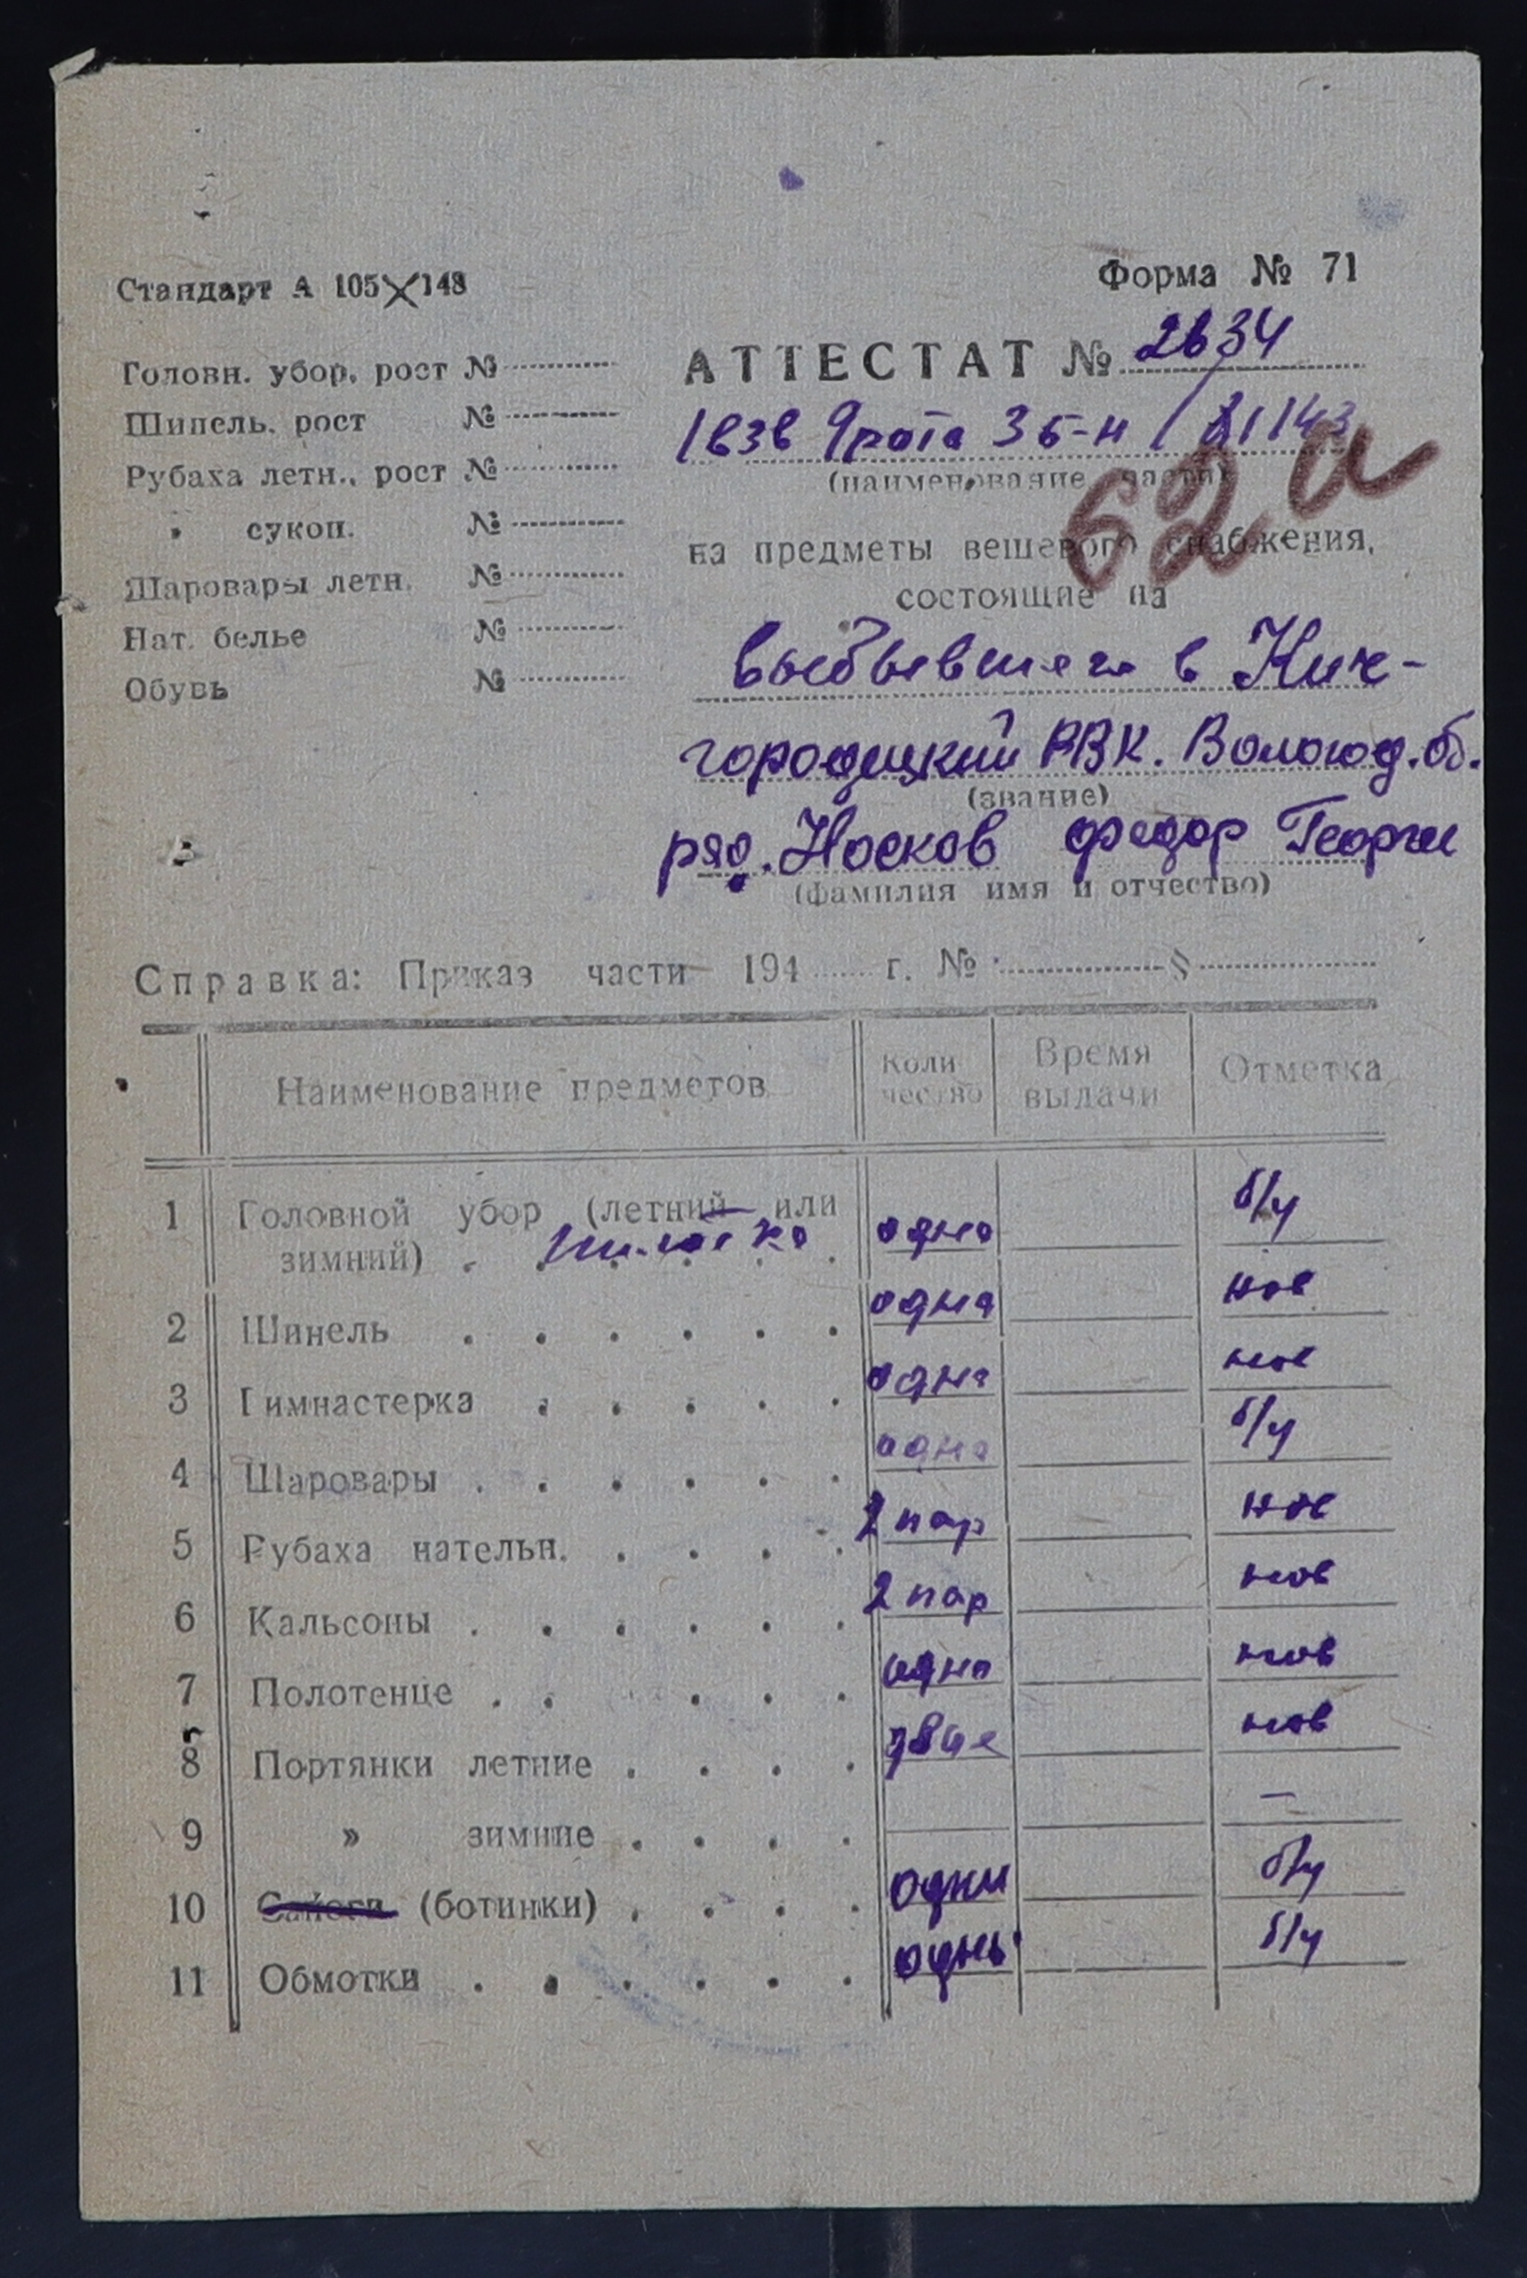 Стандарт А 105×148
Форма № 71
Головн. убор, рост №
Шинель, рост №
Рубаха летн., рост №
" сукон. №
Шаровары летн. №
Нат. белье №
Обувь №
АТТЕСТАТ № 2634
1636 9 рота 3 б-н / 21143
(наименование части)
62а
на предметы вещевого снабжения,
состоящие на
выбывшего в Кич-
городецкий РВК. Вологод. об.
(звание)
ряд. Носков Федор Георги
(фамилия имя и отчество)
Справка: Приказ части 194 г. № §
Наименование предметов Коли чество Время выдачи Отметка
1 Головной убор (летний или зимний) пилотка одна б/у
2 Шинель одна нов
3 Гимнастерка одна нов
4 Шаровары одна б/у
5 Рубаха нательн. 2 пар нов
6 Кальсоны 2 пар нов
7 Полотенце одно нов
8 Портянки летние двое нов
9 » зимние —
10 Сапоги (ботинки) одни б/у
11 Обмотки одны б/у